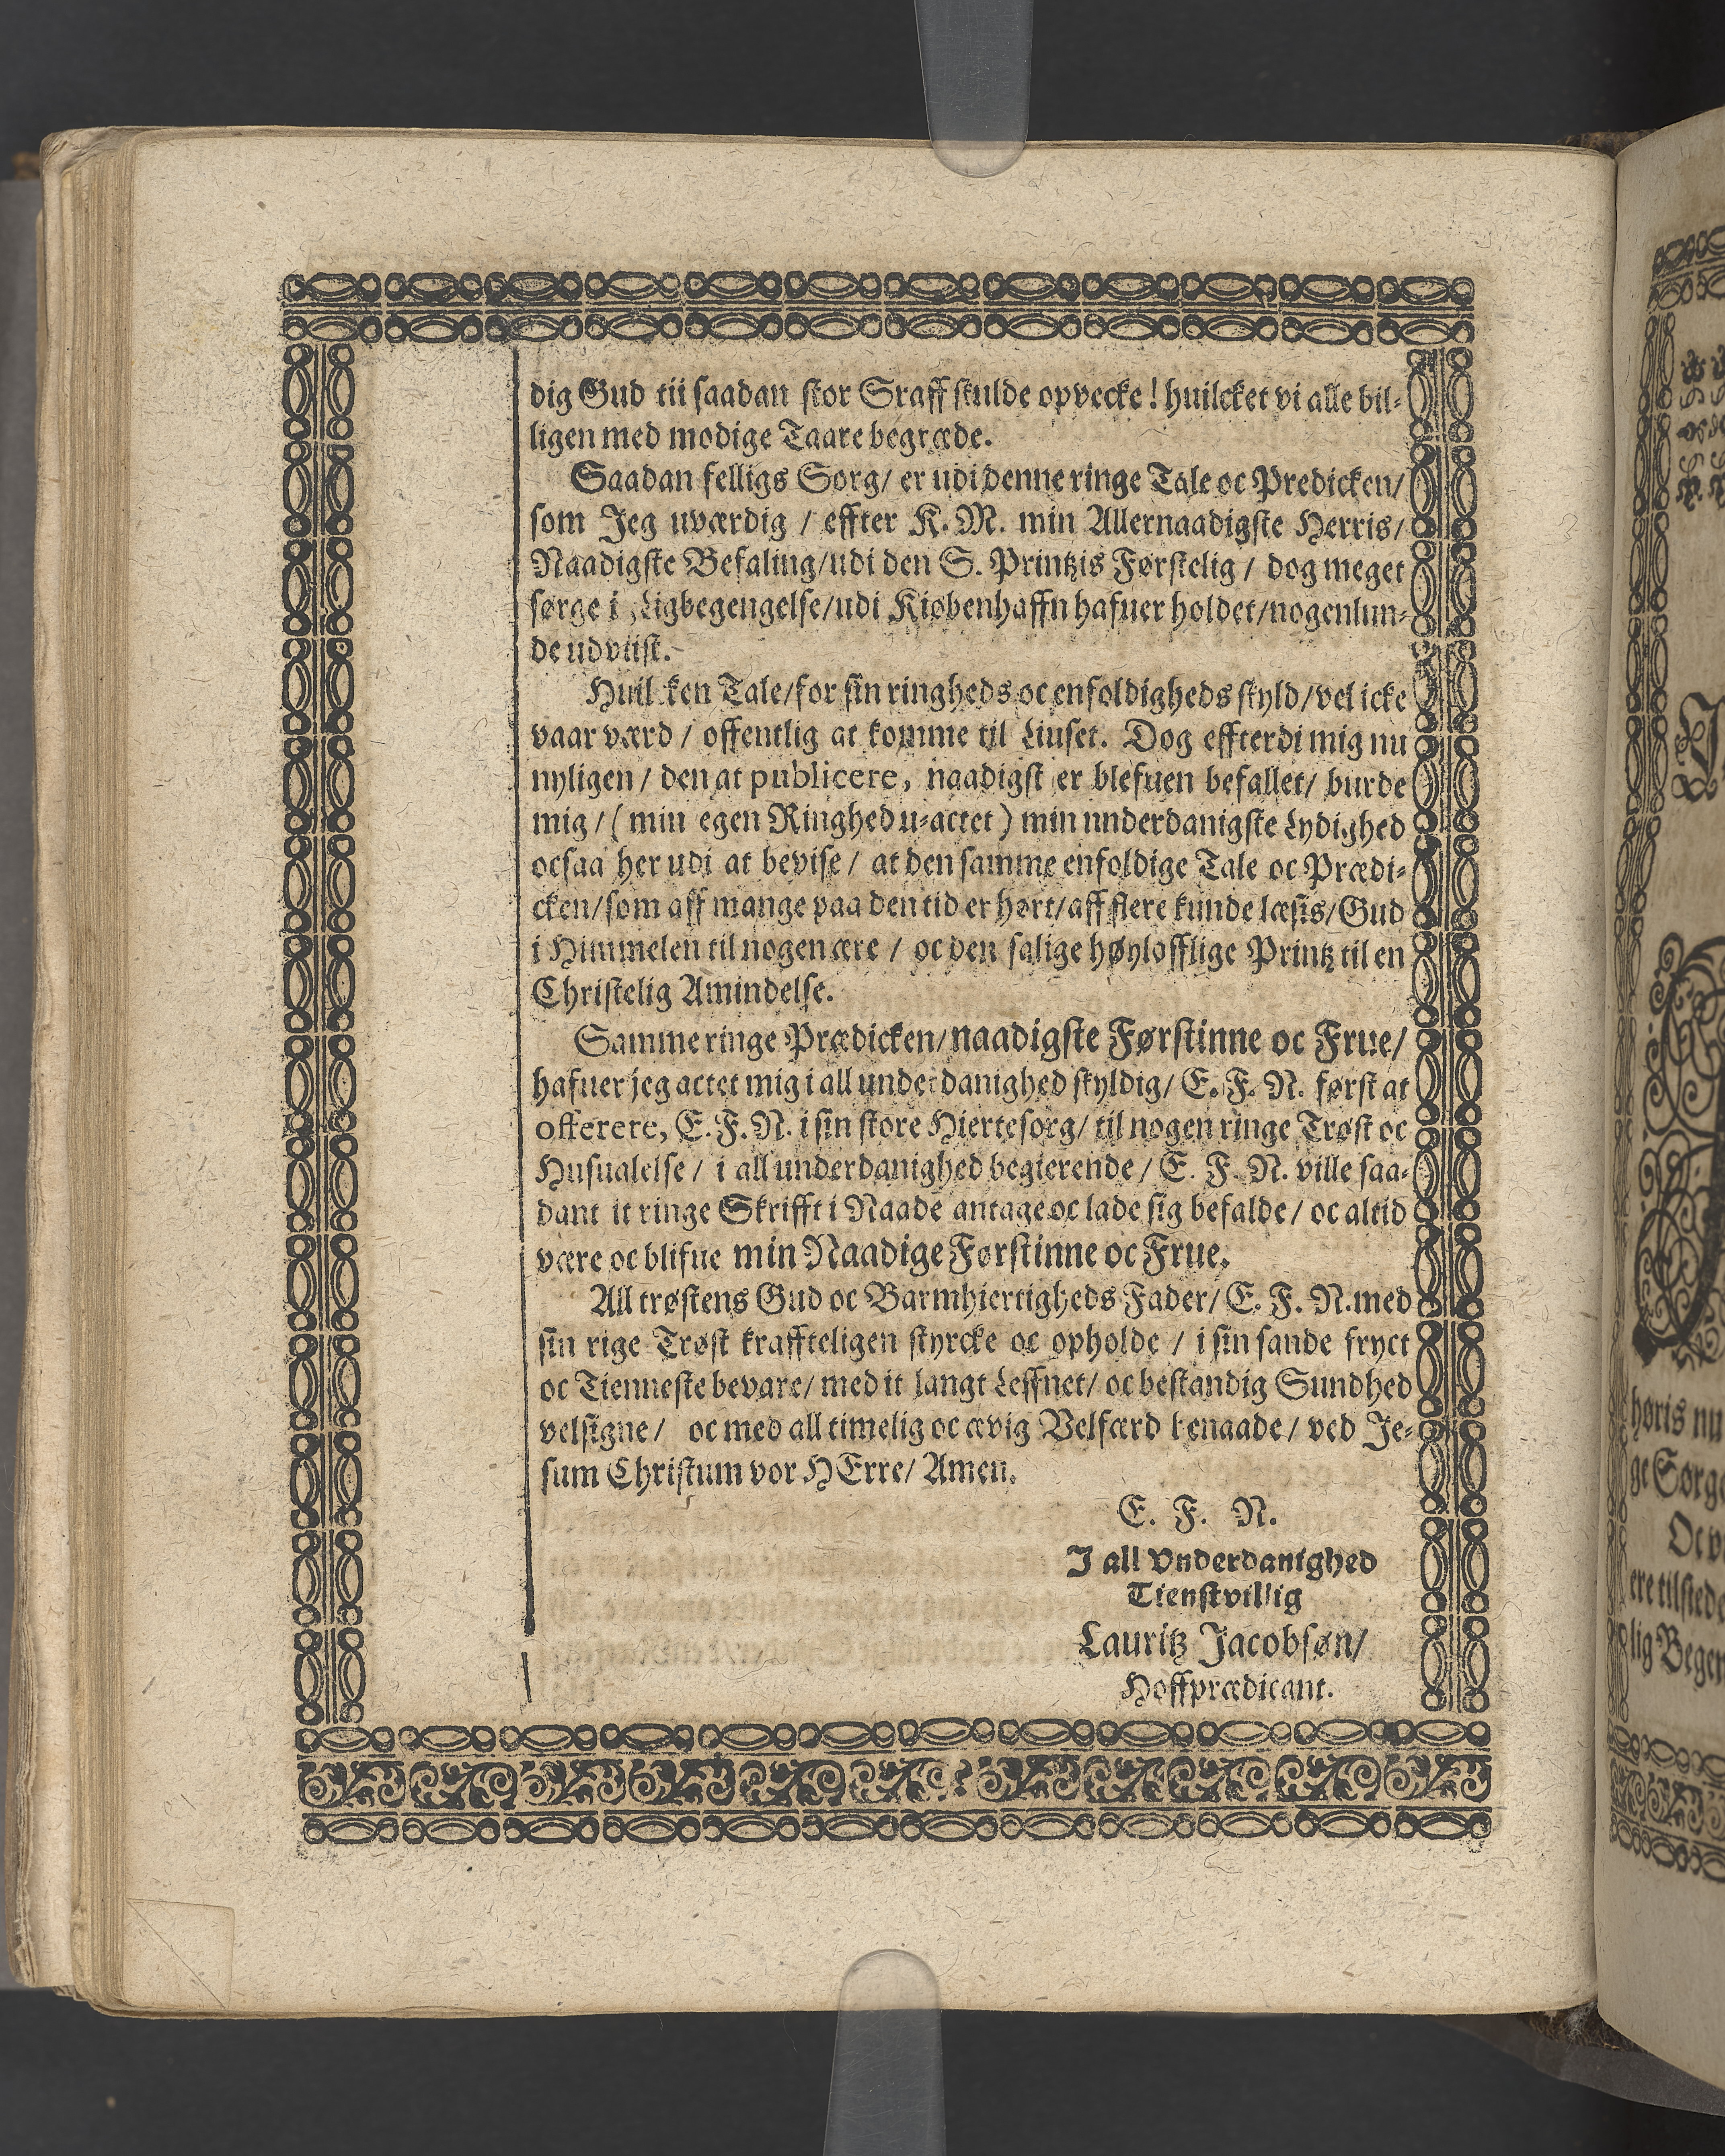 dig Gud tii saadan stor Sraff skulde opvecke! huilcket vi alle bil-
ligen med modige Taare begræde.
Saadan felligs Sorg/ er udi denne ringe Tale oc Predicken/
som Jeg uværdig / effter K. M. min Allernaadigste Herris/
Naadigste Befaling/udi den S. Printzis Førstelig / dog meget
sørge i Ligbegengelse/udi Kiøbenhaffn hafuer holdet/nogenlun-
de udviist.
Huilcken Tale/for sin ringheds oc enfoldigheds skyld/vel icke
vaar værd / offentlig at komme til Liuset. Dog effterdi mig nu
nyligen / den at publicere, naadigst er blefuen befallet/ burde
mig / ( min egen Ringhed u-actet ) min underdanigste Lydighed
ocsaa her udi at bevise / at den samme enfoldige Tale oc Prædi-
cken/som aff mange paa den tid er hørt/aff flere kunde læsis/Gud
i Himmelen til nogen ære / oc den salige høylofflige Printz til en
Christelig Amindelse.
Samme ringe Prædicken/naadigste Førstinne oc Frue/
hafuer jeg actet mig i all underdanighed skyldig/ E. F. N. først at
offerere, E. F. N. i sin store Hiertesorg/ til nogen ringe Trøst oc
Husualelse / i all underdanighed begierende / E. F. N. ville saa-
dant it ringe Skrifft i Naade antage oc lade sig befalde/ oc altid
være oc blifue min Naadige Førstinne oc Frue.
All trøstens Gud oc Barmhiertigheds Fader/ E. F. N. med
sin rige Trøst kraffteligen styrcke oc opholde / i sin sande fryct
oc Tienneste bevare/ med it langt Leffnet/ oc bestandig Sundhed
velsigne / oc med all timelig oc ævig Velfærd benaade / ved Je-
sum Christum vor HErre/ Amen.
E. F. N.
I all Vnderdanighed
Tienstvillig
Lauritz Jacobsøn/
Hoffprædicant.
høris nu
ge Sørge
Oc v
ere tilstede
lig Beger